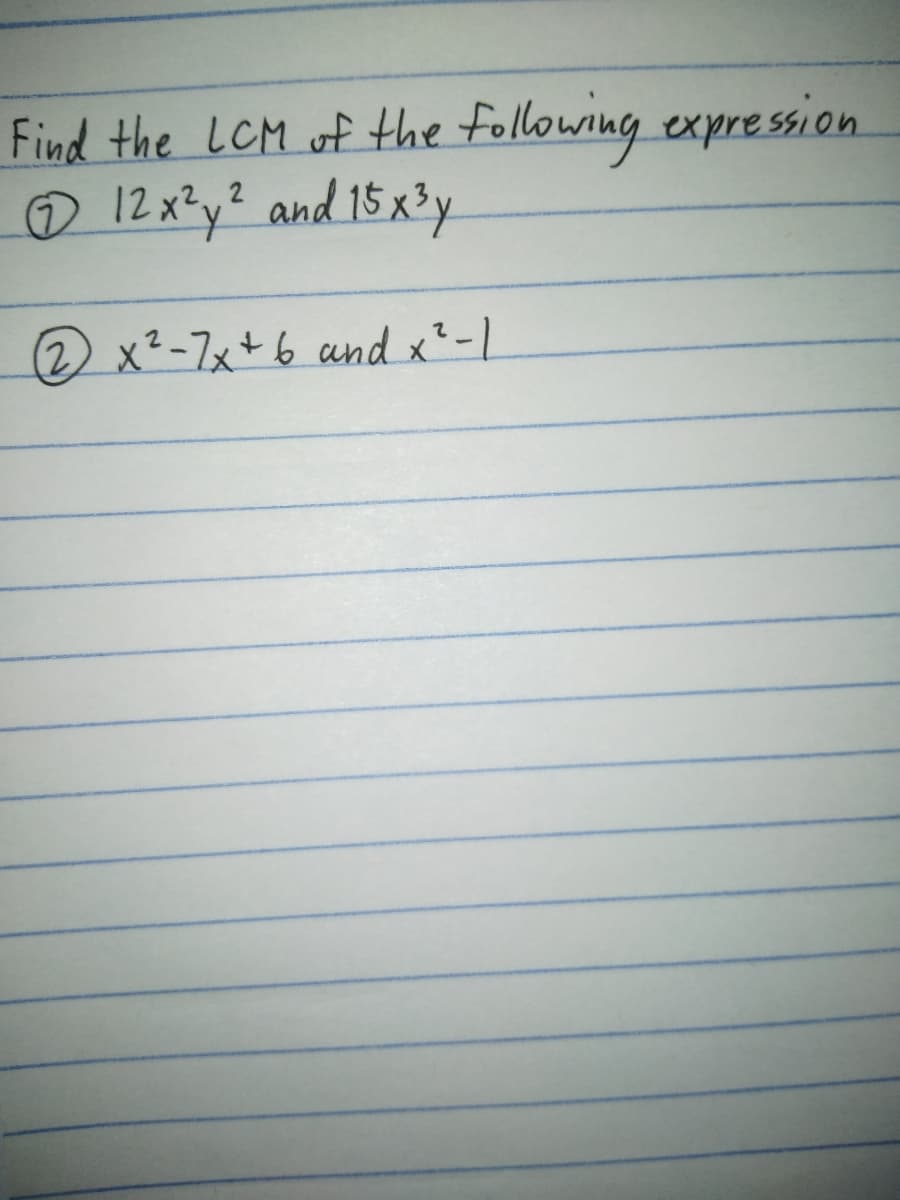 Find the LCM of the following expression
① 12x²y² and 15x³y
② x²-7x+6 and x²-1